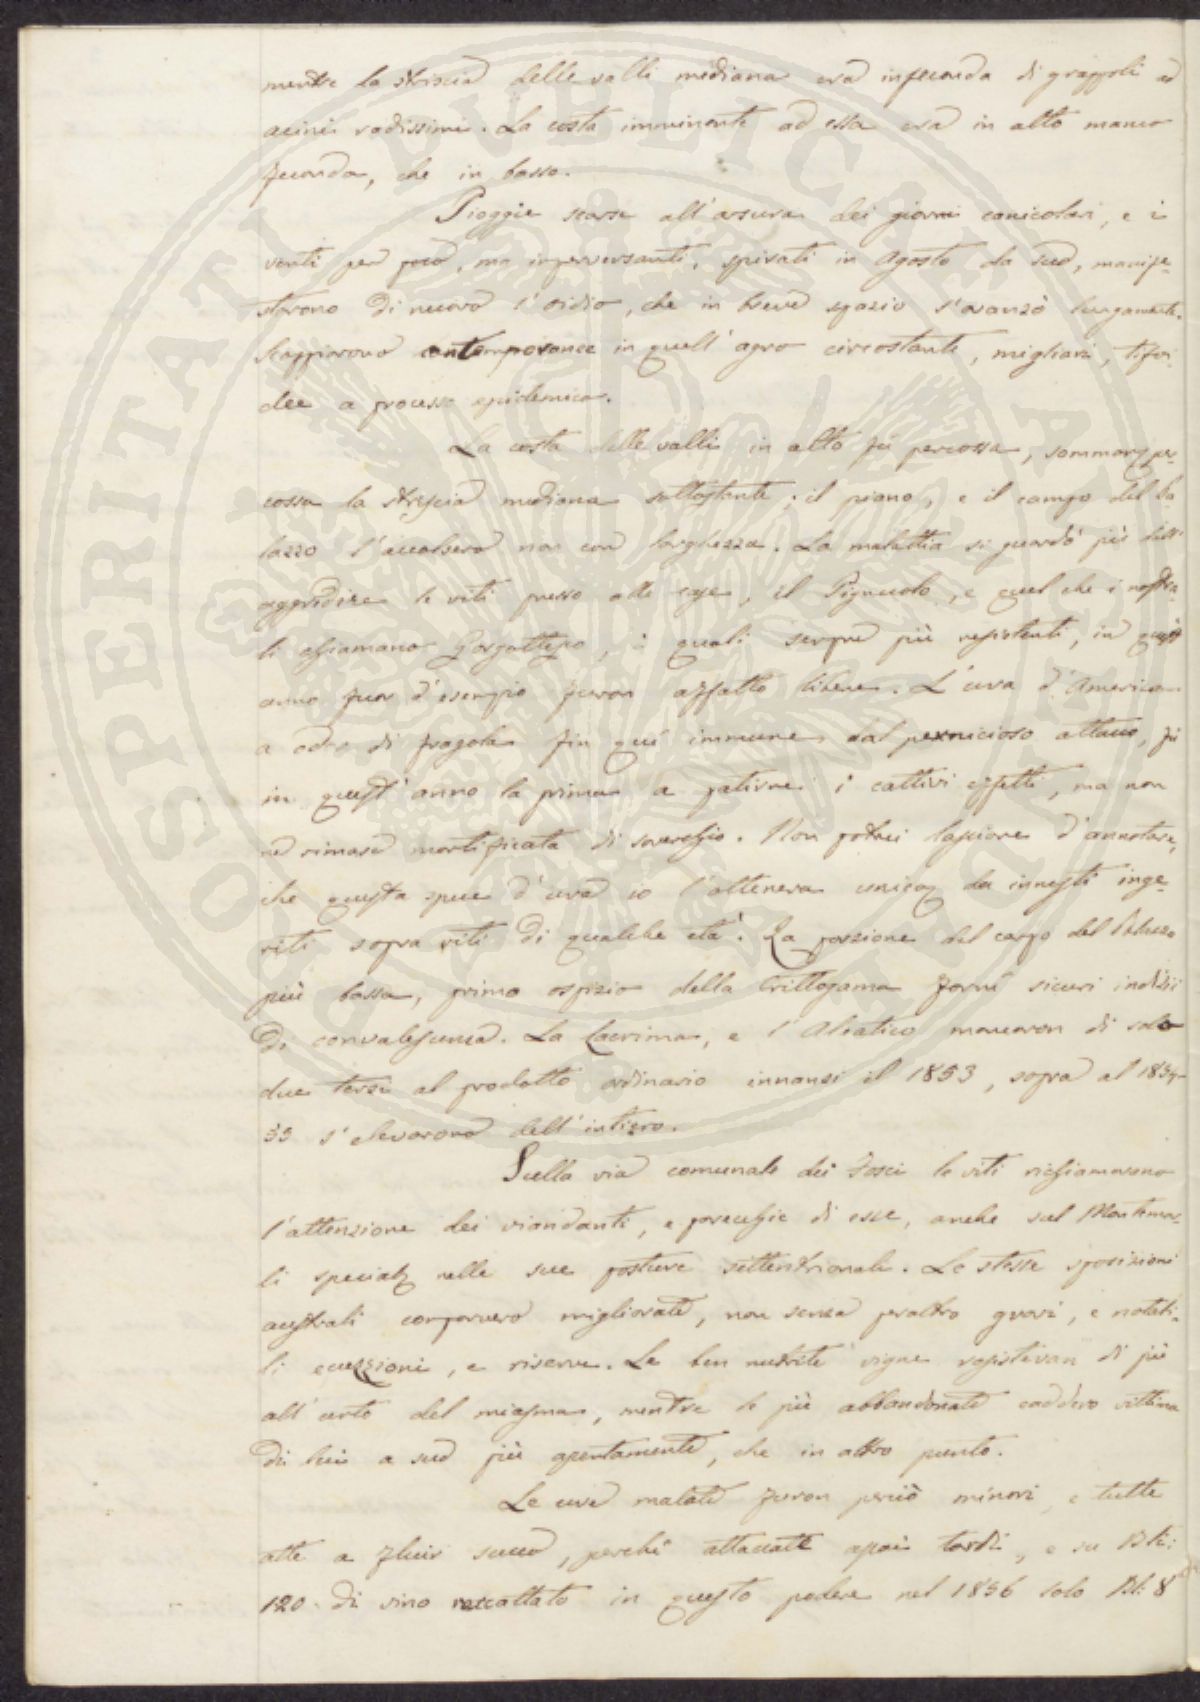 mentre la striscia delle valli mediana era infeconda di grappoli ad
acini radissimi. La costa imminente ad essa era in alto manco
feconda, che in basso.
Pioggie scarse all'arsura dei giorni canicolari, e i
venti per poco, ma imperversanti, spirati in Agosto da sud, manife-
starono di nuovo l'oidio, che in breve spazio s'avanzò largamente.
Scoppiarono contemporanee in quell'agro circostante, migliari, tifoi-
dee a processo epidemico.
La costa delle valli in alto fu percossa, sommam. per-
cossa la striscia mediana sottostante; il piano, e il campo del Pa
lazzo l'accolsero non con larghezza. La malattia si guardò più dall'
aggredire le viti presso alle case, il Pignuolo, e quel che i nostra-
li chiamano Gorgottesco, i quali sempre più resistenti, in quest'
anno fuor d'esempio furon affatto libere. L'uva d'America
a odor di fragola fin qui immune dal pernicioso attacco, fu
in quest'anno la prima a patirne i cattivi effetti, ma non
ne rimase mortificata di soverchio. Non potrei lasciare d'annotare,
che questa specie d'uva io l'otteneva unicam. da innesti inse-
riti sopra viti di qualche età. La porzione del campo del Palazzo
più bassa, primo ospizio della Crittogama fornì sicuri indizii
di convalescenza. La Lacrima, e l'Aleatico mancaron di solo
due terzi al prodotto ordinario innanzi il 1853, sopra al 1854-
55 s'elevarono dell'intiero.
Sulla via comunale dei Fosci le viti richiamavano
l'attenzione dei viandanti, e parecchie di esse, anche sul Montemor-
li specialm. nelle sue posture settentrionali. Le stesse sposizioni
australi comparvero migliorate, non senza peraltro gravi, e notabi-
li eccezzioni, e riserve. Le ben nutrite vigne resistevan di più
all'urto del miasma, mentre le più abbandonate caddero vittima
di lui a sud più apertamente, che in altro punto.
Le uve malate furon perciò minori, e tutte
atte a fluir succo, perché attaccate assai tardi, e su Bli:
120. di vino raccattato in questo podere nel 1856 solo Bl: 8